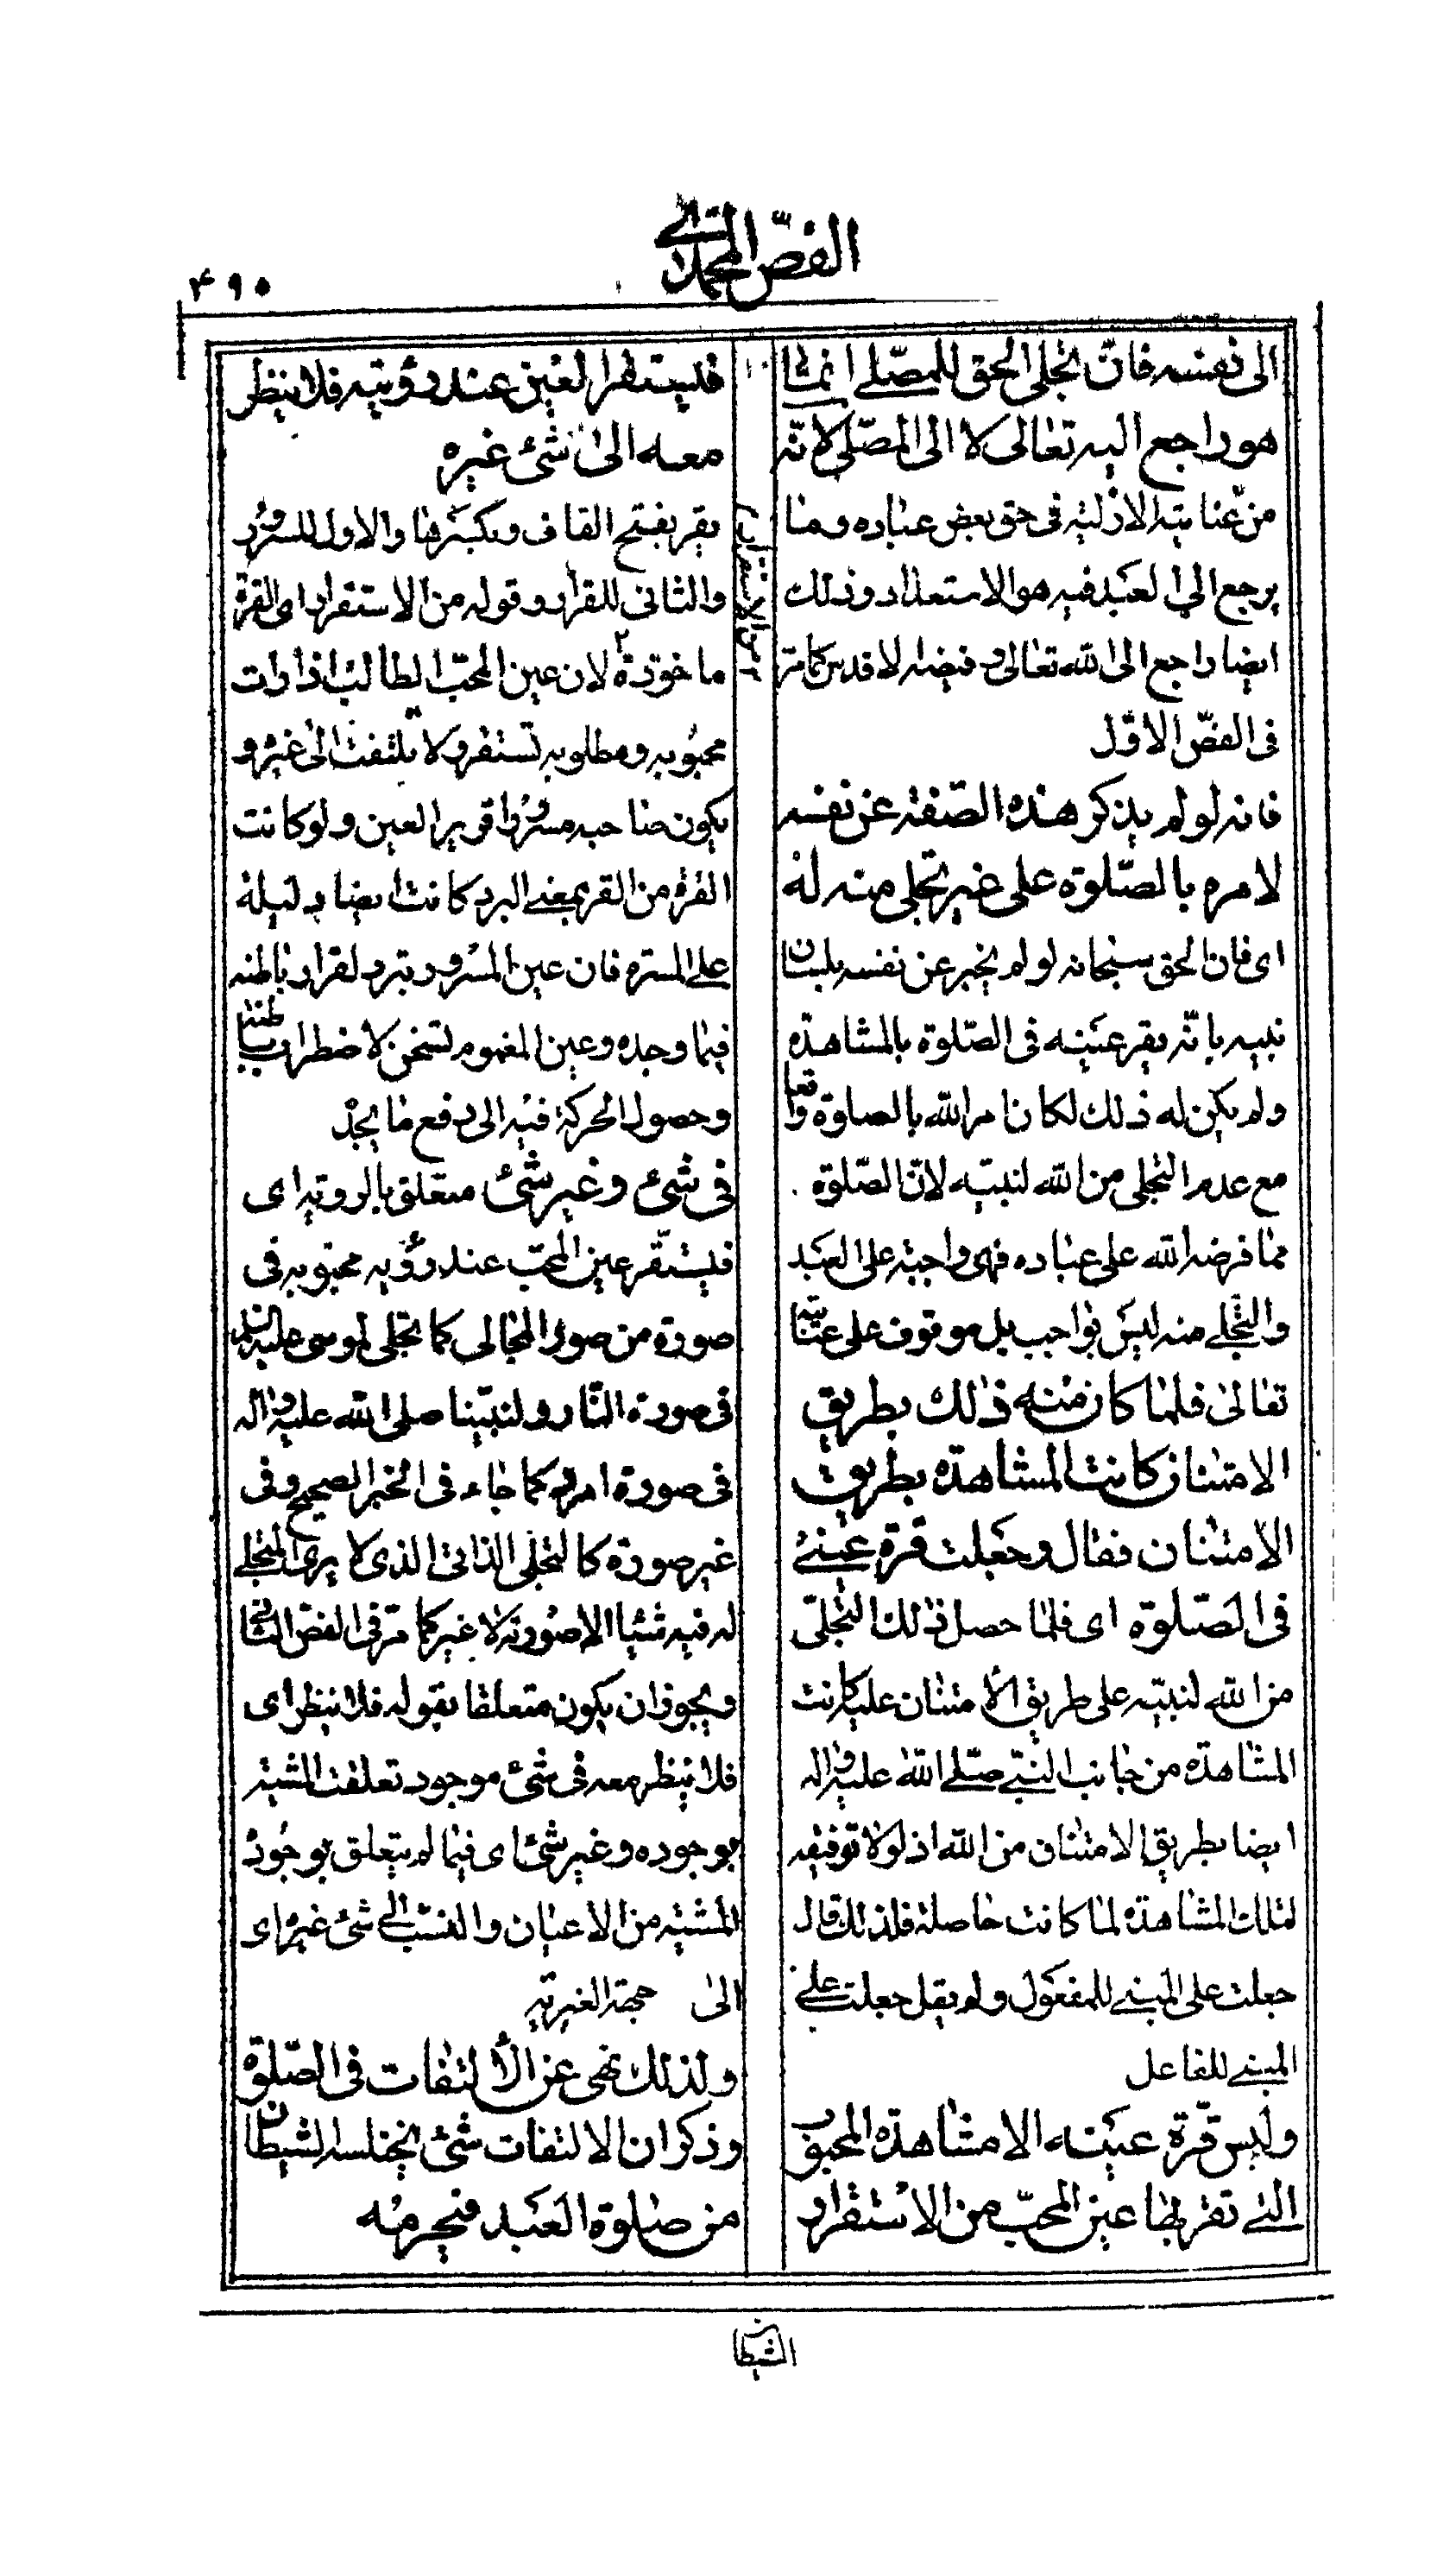 الفصّ المحمّدي
۴۹۵
الى نفسه فانّ تجلى الحق للمصلّے انما
هو راجع اليه تعالى لا الى المصلّى لانّه
من عنايته الازليّه فى حق بعض عباده وما
يرجع الى العبد فيه هو الاستعداد وذلك
ايضا راجع الى الله تعالى وفيضه الاقدس كما مرّ
فى الفصّ الاوّل
فانه لو لم يذكر هذه الصّفة عن نفسه
لامره بالصّلوة على غير تجلى منه له
اى فان الحق سبحانه لو لم يخبر عن نفسه بلسان
نبيه بانّه يقر عينه فى الصّلوة بالمشاهدة
ولم يكن له ذلك لكان امر الله بالصلوة واقعا
مع عدم التجلى من الله لنبيّه لانّ الصّلوة
ممّا فرضه الله على عباده فهى واجبة على العبد
والتّجلے منه ليس بواجب بل موقوف على عنايته
تعالى فلما كان منه ذلك بطريق
الامتنان كانت المشاهدة بطريق
الامتنان فقال وجعلت قرة عينے
فى الصّلوة اى فلما حصل ذلك التجلّى
من الله لنبيّه على طريق الامتنان عليه كانت
المشاهدة من جانب النبىّ صلّے الله عليه واله
ايضا بطريق الامتنان من الله اذ لولا توفيقه
لتلك المشاهدة لما كانت حاصلة فلذلك قال
جعلت على المبنے للمفعول ولم يقل جعلت علے
المبنے للفاعل
وليس قرّة عينه الا مشاهدة المحبوب
التے تقر بها عين المحبّ من الاستقرار
فليستقر العين عند رؤيته فلا ينظر
معه الى شئ غيره
يقر بفتح القاف وبكسرها والاول للسرور
والثانى للقرار وقوله من الاستقرار اى القرة
ماخوذة ۲ لان عين المحبّ الطالب اذا رات
محبوبه ومطلوبه تستقر ولا يلتفت الى غيره و
يكون صاحبه مسرورا قرير العين ولو كانت
القرة من القر بمعنے البرد كانت ايضا دليلة
علے المسرة فان عين المسرور تبرد لقرار باطنه
فيما وجده وعين المغموم تسخن لاضطراب باطنه
وحصول الحركة فيه الى دفع ما يجد
فى شئ وغير شئ متعلق بالروية اى
فليستقّر عين المحبّ عند رؤيه محبوبه فى
صورة من صور المجالى كما تجلى لموسى عليه السلم
فى صورة النّار ولنبيّنا صلى الله عليه واله
فى صورة امرد كما جاء فى الخبر الصحيح وفى
غير صورة كالتجلى الذاتى الذى لا يرى المتجلے
له فيه شئيا الا صورته لا غير كما مرّ فى الفصّ الثانى
ويجوز ان يكون متعلقا بقوله فلا ينظر اى
فلا ينظر معه فى شئ موجود تعلقت المشيّة
بوجوده وغير شئ اى فيما لم يتعلق بوجود
المشيّة من الاعيان والنسب الى شئ غيره اى
الى جهة الغيرية
ولذلك نهى عن الالتفات فى الصّلوة
وذكر ان الالتفات شئ يختلسه الشيطان
من صلوة العبد فيحرمه
۲ من الاستقرار
الشيطان